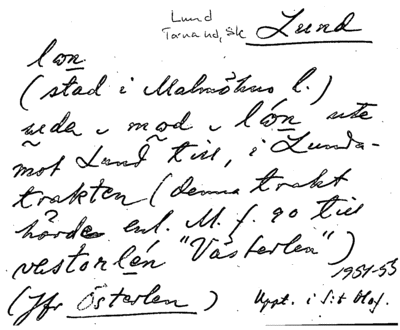 Lund
Tornand, Sk
Lund
lɷn
(stad i Malmöhus l.)
ude mod lɷn ute
mot Lund till, i Lunda-
trakten (denna trakt
hörde enl. M. f. 90 till
västorlén "Västerlen")
1951-53
(Jfr Österlen) Uppt. i S-t Olof.